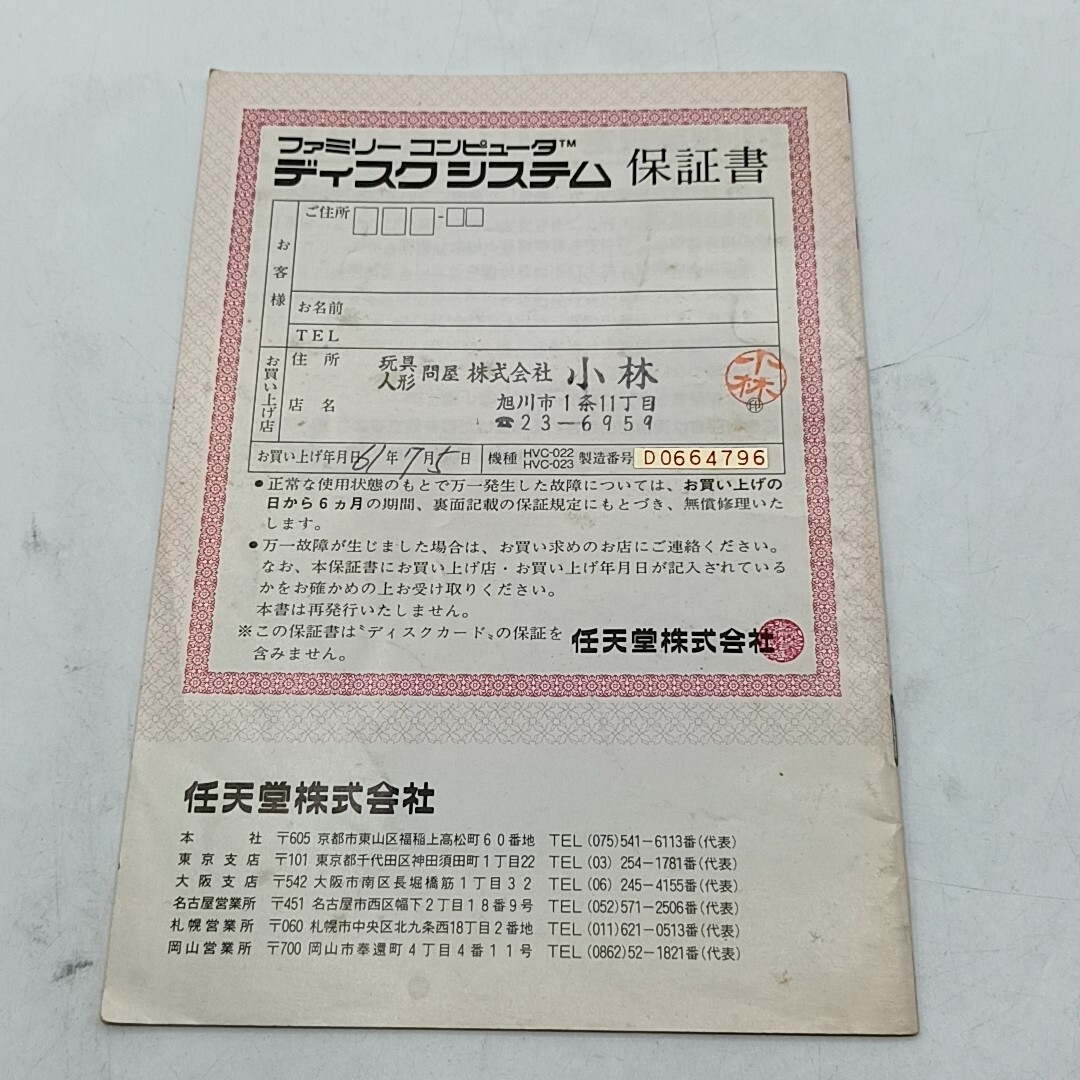 ファミリー コンピュータ™
ディスクシステム 保証書
お客様
ご住所 -
お名前
TEL
お買い上げ店
住所 玩具人形 問屋 株式会社 小林
小林
旭川市1条11丁目
店名 ☎23-6959
印
お買い上げ年月日 61年7月5日 機種 HVC-022 HVC-023 製造番号 D0664796
●正常な使用状態のもとで万一発生した故障については、お買い上げの
日から6ヵ月の期間、裏面記載の保証規定にもとづき、無償修理いた
します。
●万一故障が生じました場合は、お買い求めのお店にご連絡ください。
なお、本保証書にお買い上げ店・お買い上げ年月日が記入されている
かをお確かめの上お受け取りください。
本書は再発行いたしません。
※この保証書は〝ディスクカード〟の保証を
含みません。
任天堂株式会社
任天堂株式会社
本社 〒605 京都市東山区福稲上高松町60番地 TEL(075)541-6113番(代表)
東京支店 〒101 東京都千代田区神田須田町1丁目22 TEL(03)254-1781番(代表)
大阪支店 〒542 大阪市南区長堀橋筋1丁目32 TEL(06)245-4155番(代表)
名古屋営業所 〒451 名古屋市西区幅下2丁目18番9号 TEL(052)571-2506番(代表)
札幌営業所 〒060 札幌市中央区北九条西18丁目2番地 TEL(011)621-0513番(代表)
岡山営業所 〒700 岡山市奉還町4丁目4番11号 TEL(0862)52-1821番(代表)